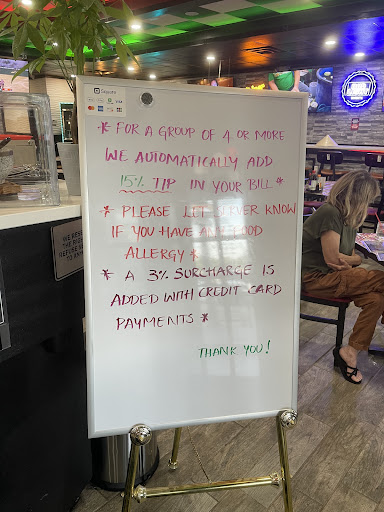 Square
VISA
* FOR A GROUP OF 4 OR MORE
WE AUTOMATICALLY ADD
15% TIP IN YOUR BILL *
* PLEASE LET SERVER KNOW
IF YOU HAVE ANY FOOD
ALLERGY *
* A 3% SURCHARGE IS
ADDED WITH CREDIT CARD
PAYMENTS *
THANK YOU!
WE RES
THE RI
REFUSE S
TO AN